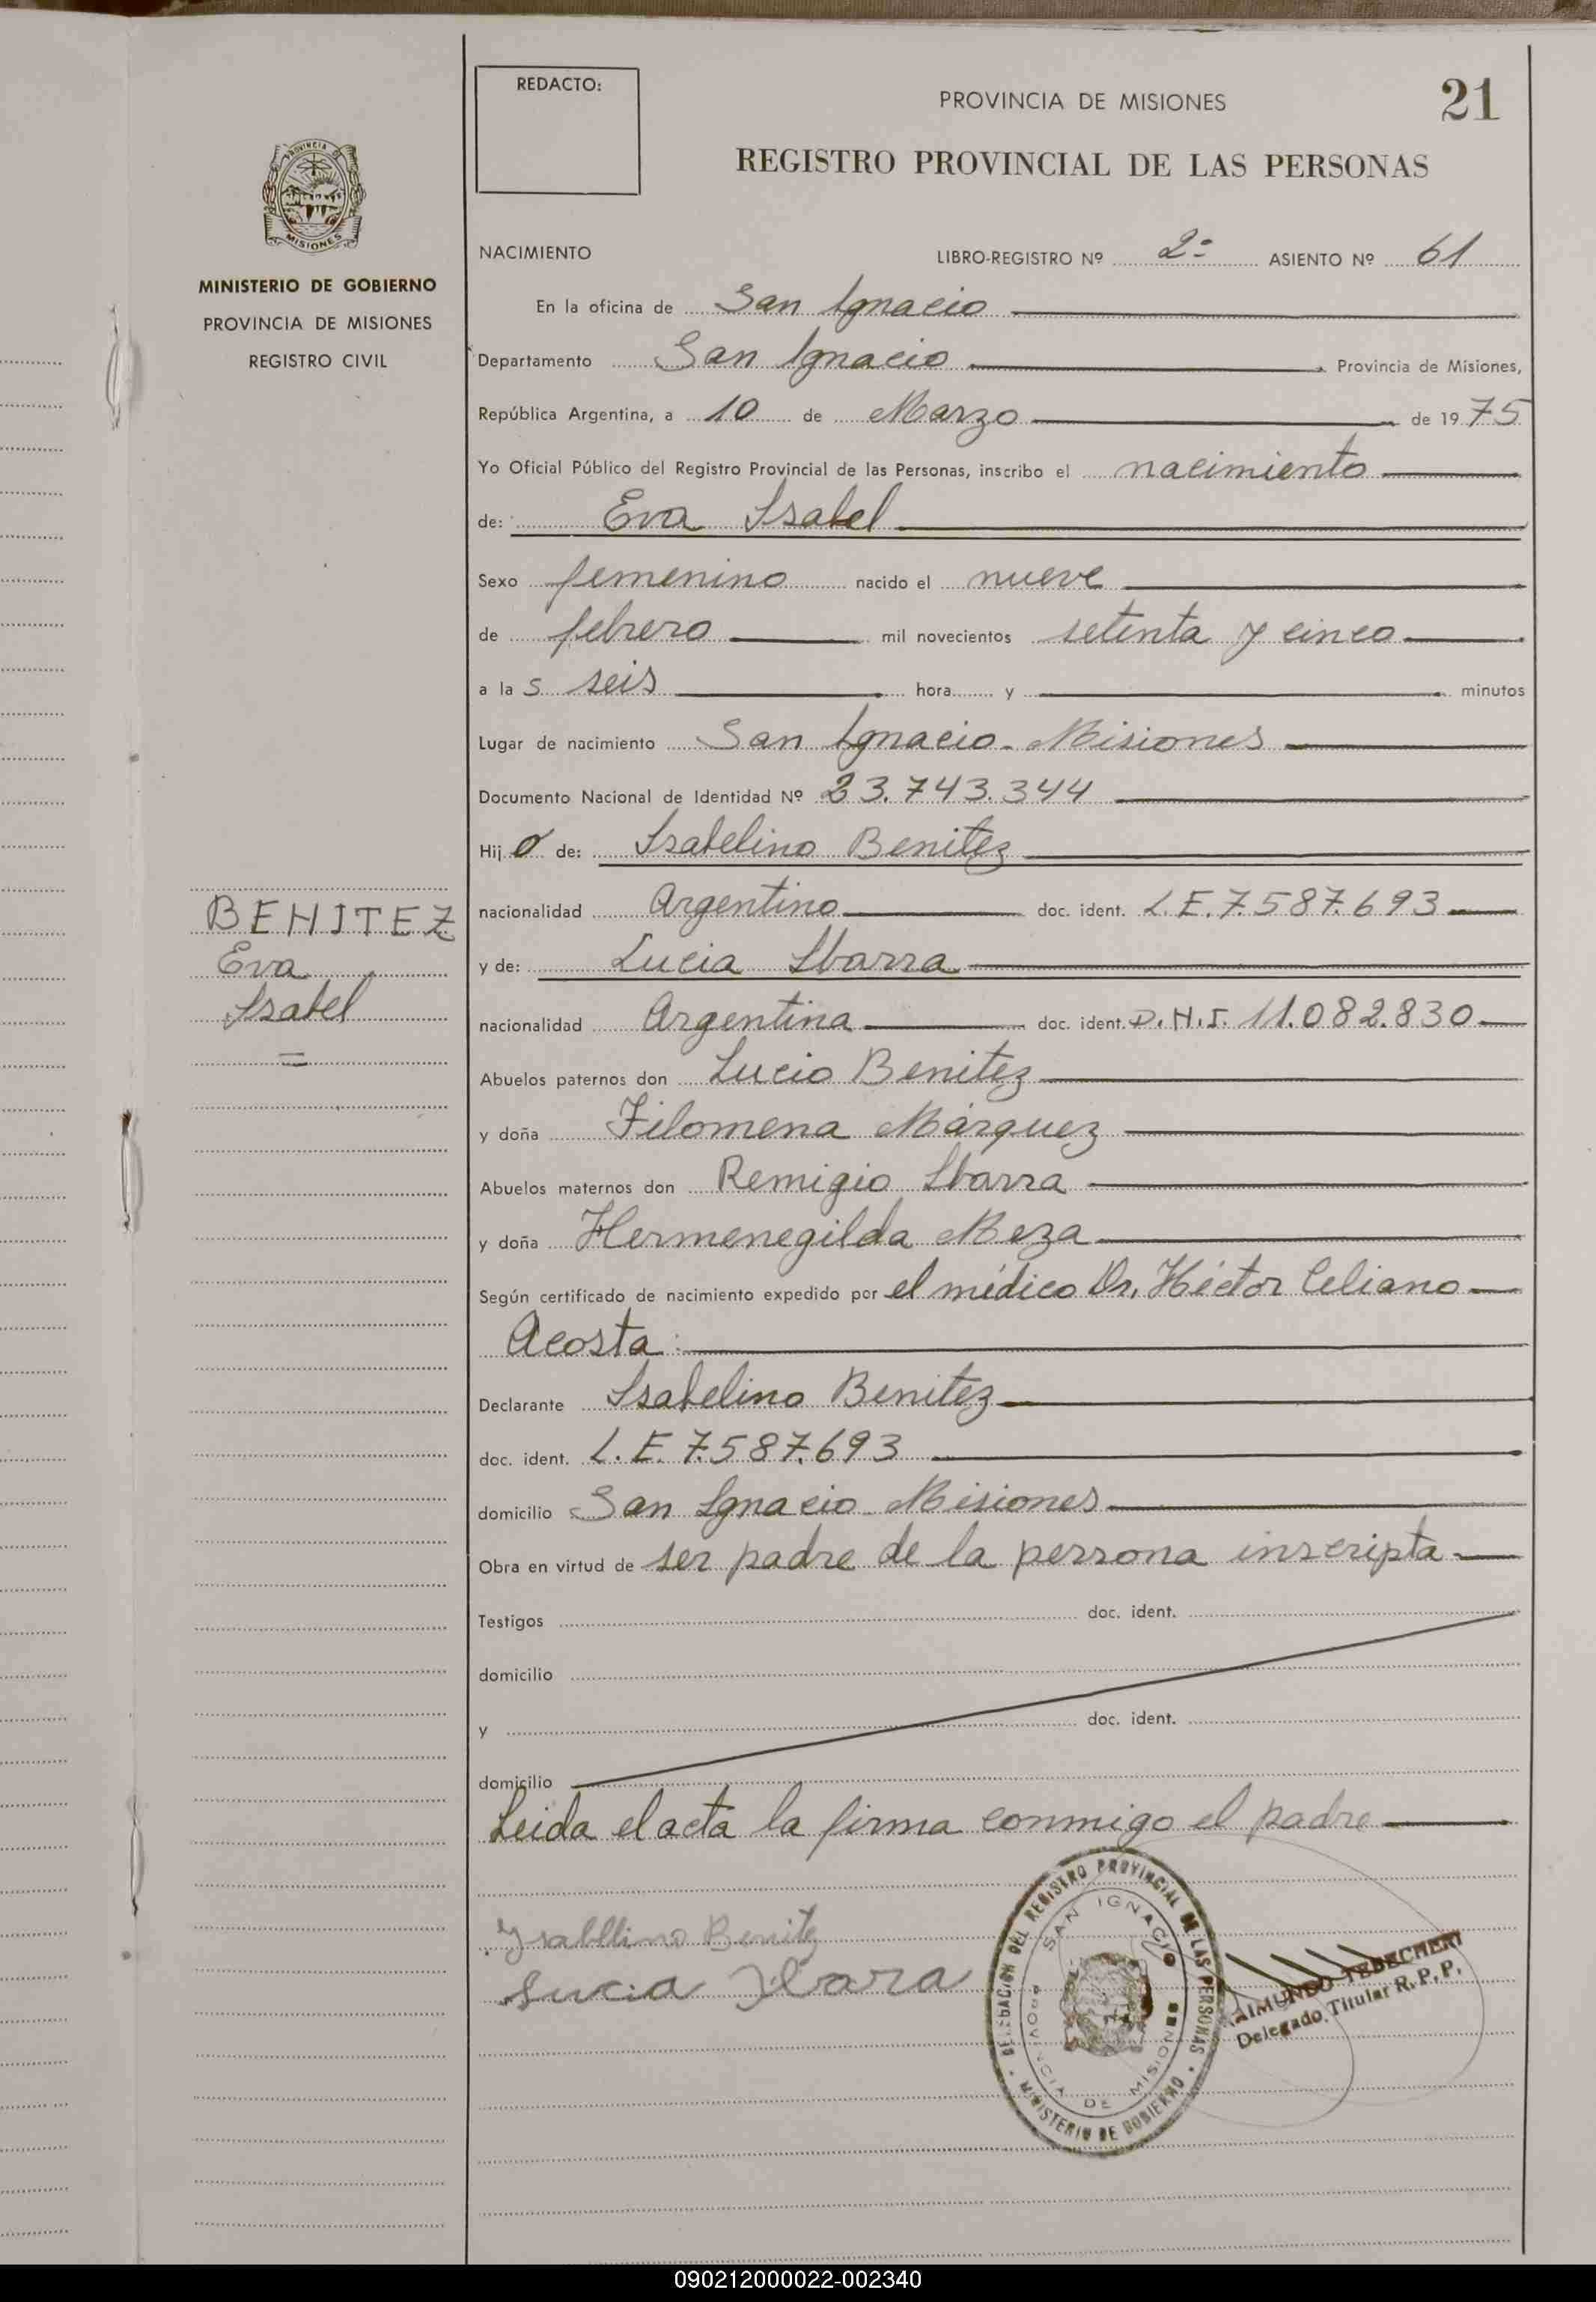 REDACTO:
PROVINCIA DE MISIONES
21
REGISTRO PROVINCIAL DE LAS PERSONAS
PROVINCIA DE
MISIONES
MINISTERIO DE GOBIERNO
PROVINCIA DE MISIONES
REGISTRO CIVIL
NACIMIENTO
LIBRO-REGISTRO Nº 2º ASIENTO Nº 61
En la oficina de San Ignacio
Departamento San Ignacio Provincia de Misiones,
República Argentina, a 10 de Marzo de 1975
Yo Oficial Público del Registro Provincial de las Personas, inscribo el nacimiento
de: Eva Isabel
Sexo femenino nacido el nueve
de febrero mil novecientos setenta y cinco
a las seis hora y minutos
Lugar de nacimiento San Ignacio - Misiones
Documento Nacional de Identidad Nº 23.743.344
Hija de: Isabelino Benitez
nacionalidad Argentino doc. ident. L.E. 7.587.693
y de: Lucia Ibarra
nacionalidad Argentina doc. ident. D.N.I. 11.082.830
Abuelos paternos don Lucio Benitez
y doña Filomena Márquez
Abuelos maternos don Remigio Ibarra
y doña Hermenegilda Meza
Según certificado de nacimiento expedido por el médico Dr. Héctor Celiano
Acosta
Declarante Isabelino Benitez
doc. ident. L.E. 7.587.693
domicilio San Ignacio - Misiones
Obra en virtud de ser padre de la persona inscripta
Testigos doc. ident.
domicilio
y doc. ident.
domicilio
Leida el acta la firma conmigo el padre
BENITEZ
Eva
Isabel
Ysabllino Benitz
Lucia Ibara
DELEGACION DEL REGISTRO PROVINCIAL DE LAS PERSONAS
MINISTERIO DE GOBIERNO
SAN IGNACIO
PROVINCIA DE MISIONES
RAIMUNDO TEBECHERI
Delegado Titular R.P.P.
090212000022-002340